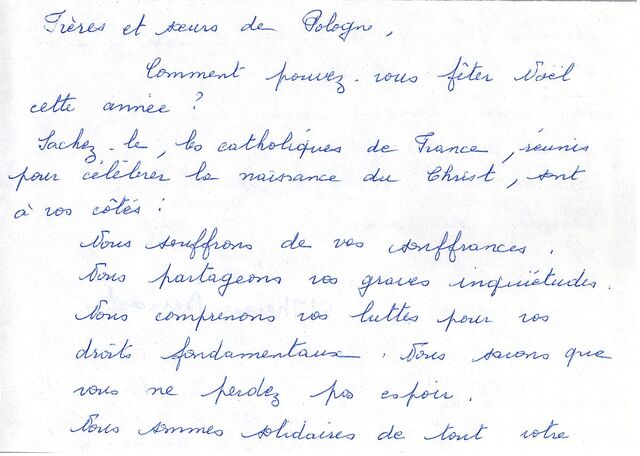 Frères et sœurs de Pologne,
Comment pouvez-vous fêter Noël
cette année ?
Sachez-le, les catholiques de France, réunis
pour célébrer la naissance du Christ, sont
à vos côtés :
Nous souffrons de vos souffrances.
Nous partageons vos graves inquiétudes.
Nous comprenons vos luttes pour vos
droits fondamentaux. Nous savons que
vous ne perdez pas espoir.
Nous sommes solidaires de tout votre